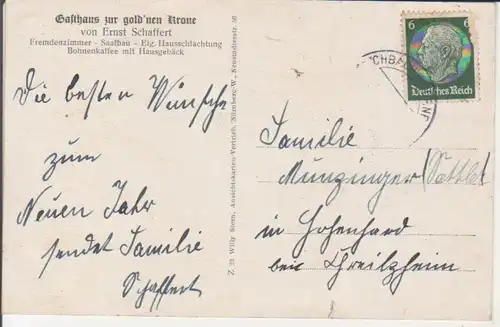 Gasthaus zur gold'nen Krone
von Ernst Schaffert
Fremdenzimmer - Saalbau - Eig. Hausschlachtung
Bohnenkaffee mit Hausgebäck
Die besten Wünsche
zum
Neuen Jahr
sendet Familie
Schaffert
Z. 23 Willy Stern, Ansichtskarten-Vertrieb, Nürnberg-W., Neusündersstr. 50
6 6
Deutsches Reich
Familie
Munzinger (Sattler)
in Hohenhard
bei